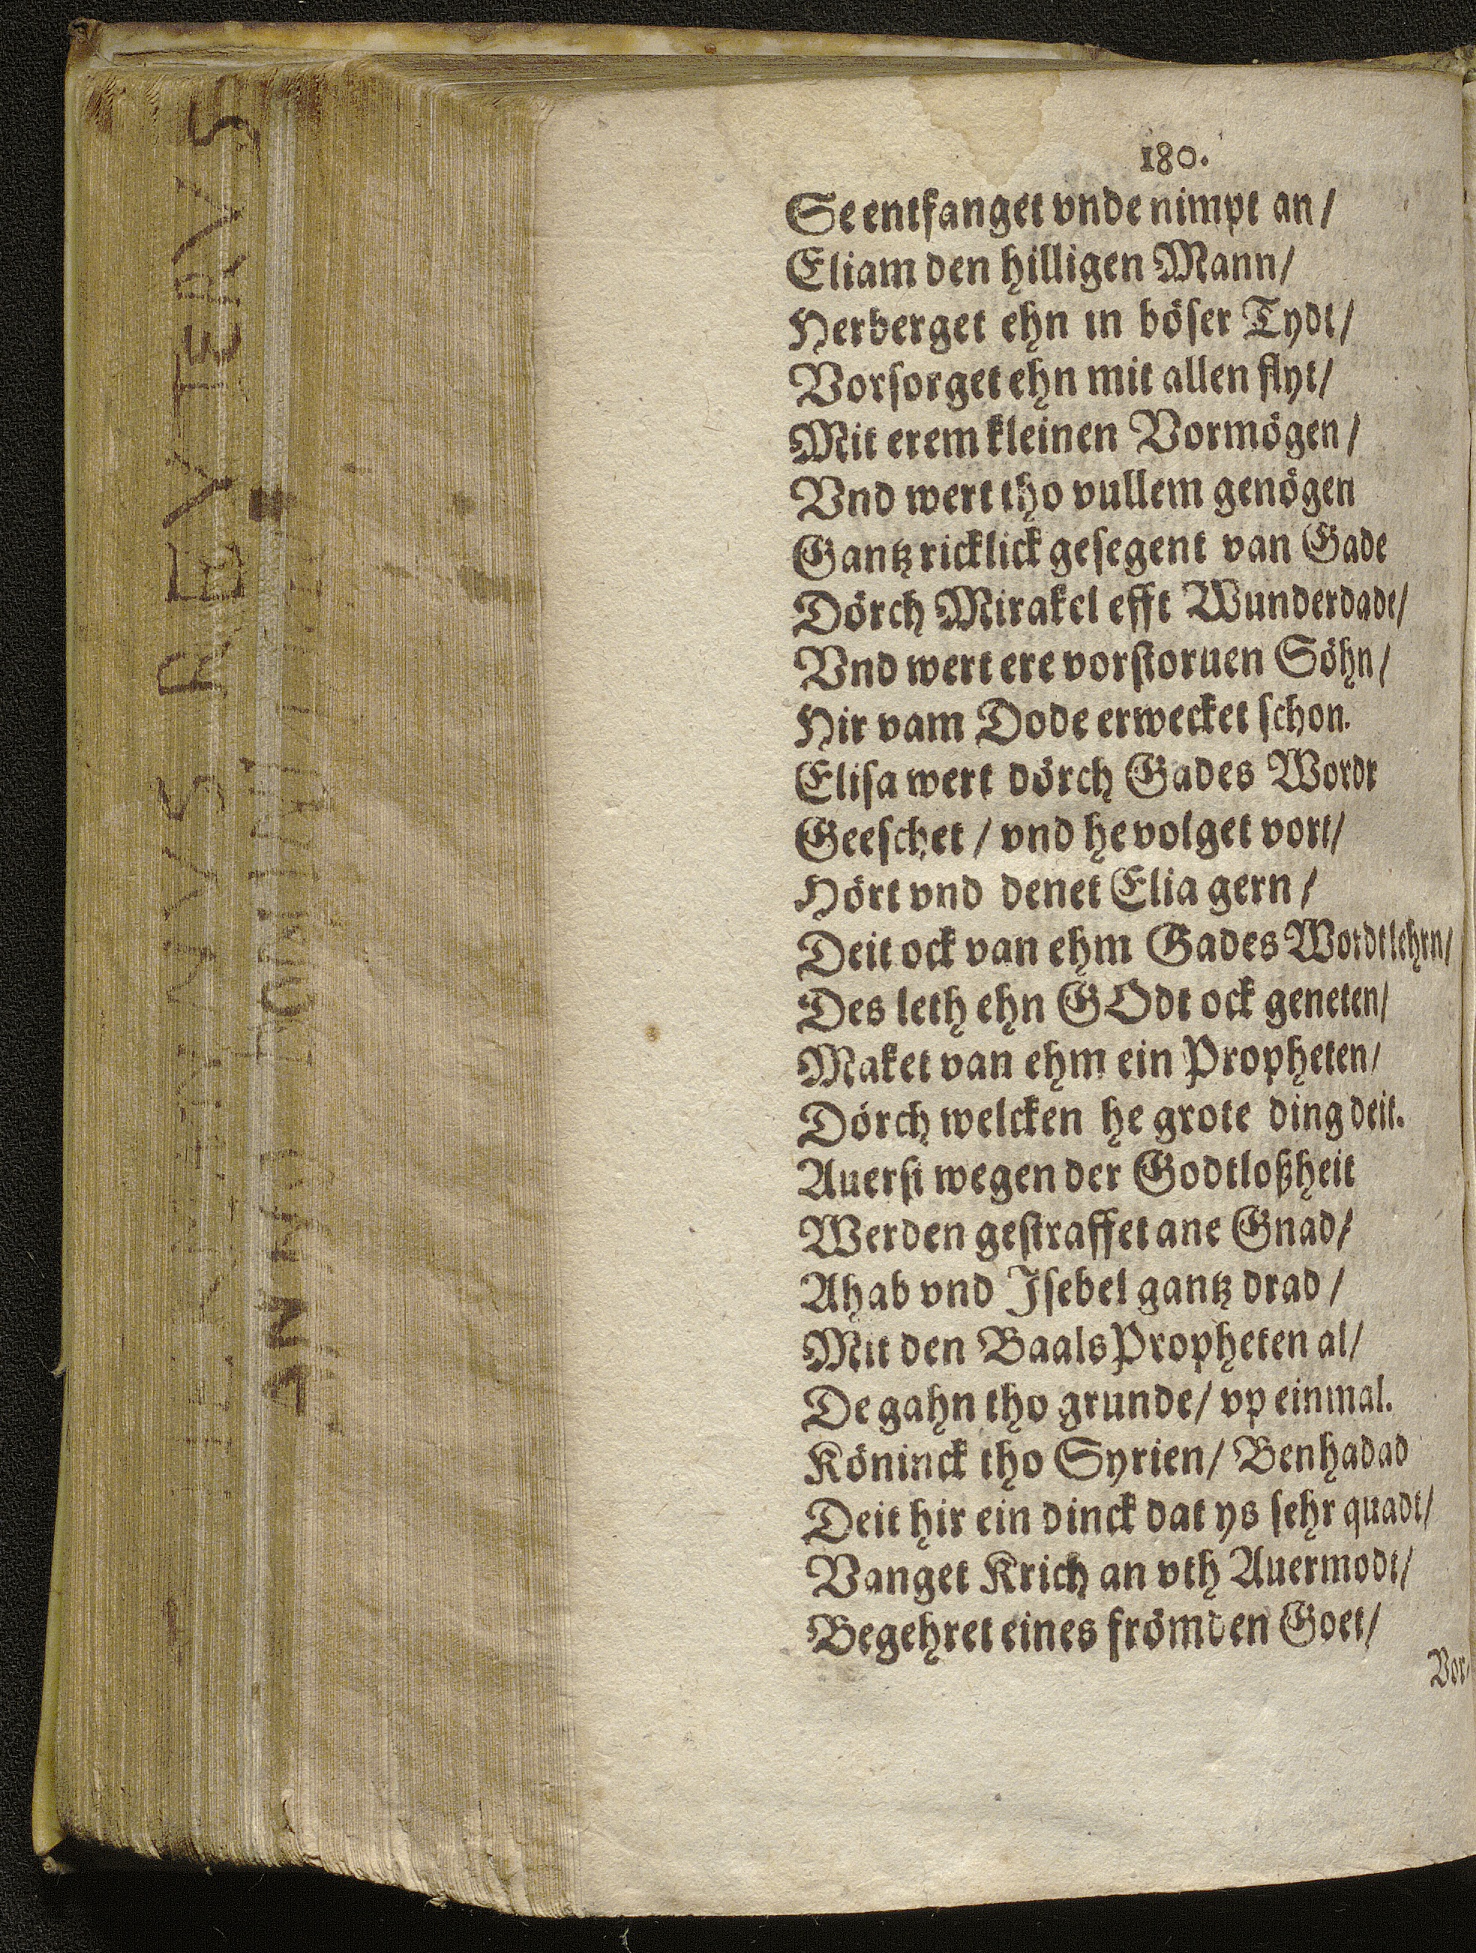 180.
Se entfanget vnde nimpt an /
Eliam den hilligen Mann /
Herberget ehn in böser Tydt /
Vorsorget ehn mit allen flyt /
Mit erem kleinen Vormögen /
Vnd wert tho vullem genögen
Gantz ricklick gesegent van Gade
Dörch Mirakel efft Wunderdade /
Vnd wert ere vorstoruen Söhn /
Hir vam Dode erwecket schon.
Elisa wert dörch Gades Wordt
Geeschet / vnd he volget vort /
Hört vnd denet Elia gern /
Deit ock van ehm Gades Wordt lehrn /
Des leth ehn GOdt ock geneten /
Maket van ehm ein Propheten /
Dörch welcken he grote ding deit.
Auerst wegen der Godtloßheit
Werden gestraffet ane Gnad /
Ahab vnd Jsebel gantz drad /
Mit den Baals Propheten al /
De gahn tho grunde / vp einmal.
Köninck tho Syrien / Benhadad
Deit hir ein dinck dat ys sehr quadt /
Vanget Krich an vth Auermodt /
Begehret eines frömden Goet /
Vor-
REVTERVS
ANNO DOMINI